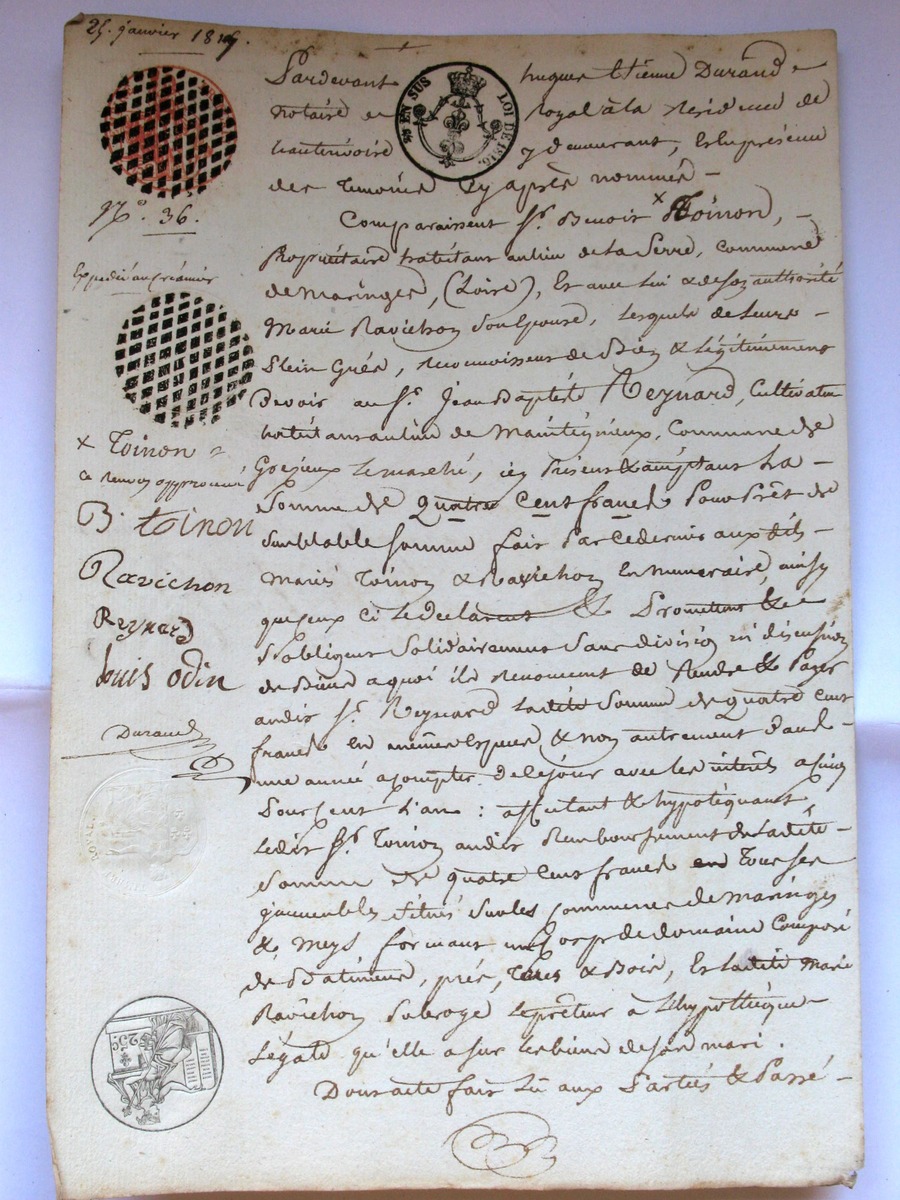 25. janvier 18
N.° 36.
Expédié au créancier
x Toinon
ce renvoy approuvé
B. toinon
Ravichon
Reynard
louis odin
Durand
25 EN SUS
LOI DE 1816.
25c.
Pardevant hugues Etienne Durand
notaire royal à la Résidence de
y demeurant, Et en présence
des Témoins Cy après nommés
Comparaissent Sr. Benoit x Toinon,
Propriétaire habitant au lieu de la Serre, commune
de Maringes, (Loire), Et avec lui & de son authorité
Marie Ravichon son Epouse, lesquels de leurs
Plein Grés, reconnoissent de Bien & Légitimement
Devoir au Sr. Jean Baptiste Reynard, Cultivateur
habitant au lieu de commune de
le marché, icy Présent & acceptant La
Somme de Quatre Cent francs Pour Prêt de
Semblable Somme fait Par ce dernier aux dits
Mariés Toinon & Ravichon En Numeraire, ainsy
qu'eux ci le declarent & Promettent &
S'obligent Solidairement Sans division ni discussion
de Biens a quoi ils Renoncent de Rendre & Payer
audit Sr. Reynard Ladite Somme de quatre cent
francs En même Espece & non autrement
une année a compter de ce jour avec les intérêts a cinq
Pour Cent L'an : affectant & hypotéquant
Ledit Sr. Toinon audit Remboursement de Ladite
Somme de quatre Cent francs en Tous Ses
immeubles situés sur les Communes de Maringes
& Meys formant un Corps de domaine Composé
de Bâtiments, prés, Terres & Bois, Et ladite Marie
Ravichon Subroge Le prêteur à L'hypothéque
Légale qu'elle a sur les biens de son mari.
Dont acte fait Lu aux Parties & Passé